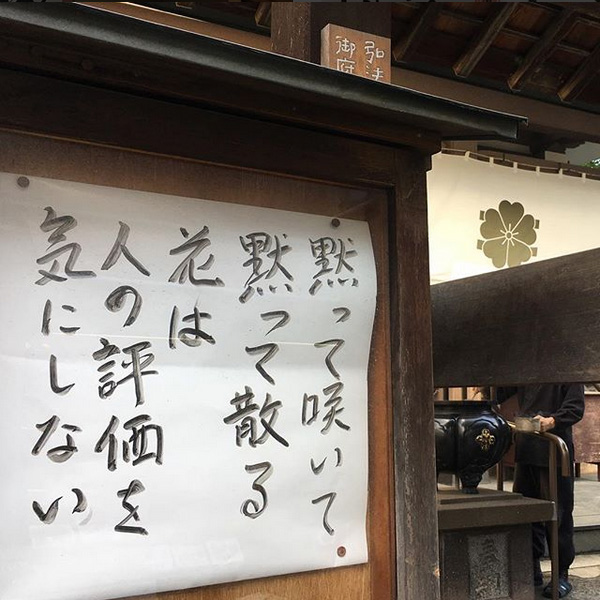 黙って咲いて
黙って散る
花は
人の評価を
気にしない
弘法
御庭